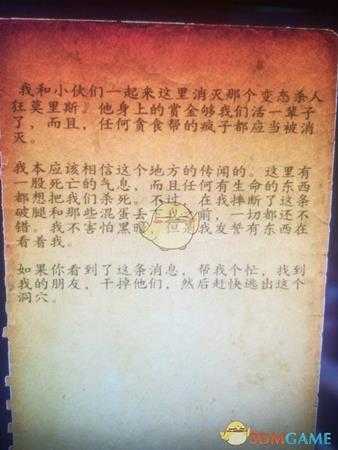 我和小伙们一起来这里消灭那个变态杀人
狂莫里斯。他身上的赏金够我们活一辈子
了，而且，任何贪食帮的疯子都应当被消
灭。
我本应该相信这个地方的传闻的。这里有
一股死亡的气息，而且任何有生命的东西
都想把我们杀死。不过，在我摔断了这条
破腿和那些混蛋丢下我之前，一切都还不
错。我不害怕黑暗，但是我发誓有东西在
看着我。
如果你看到了这条消息，帮我个忙，找到
我的朋友，干掉他们，然后赶快逃出这个
洞穴。
3DMGAME